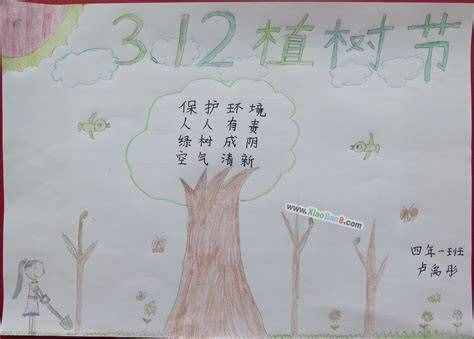 3.12植树节
保护环境
人人有责
绿树成阴
空气清新
www.XiaoBao8.com
四年一班
卢禹彤